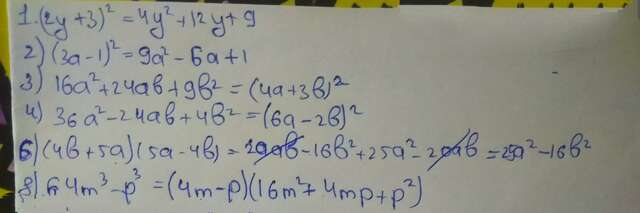 1. (2y+3)² = 4y²+12y+9
2) (3a-1)² = 9a²-6a+1
3) 16a²+24ab+9b² = (4a+3b)²
4) 36a²-24ab+4b² = (6a-2b)²
6) (4b+5a)(5a-4b) = 20ab-16b²+25a²-20ab = 25a²-16b²
8) 64m³-p³ = (4m-p)(16m²+4mp+p²)